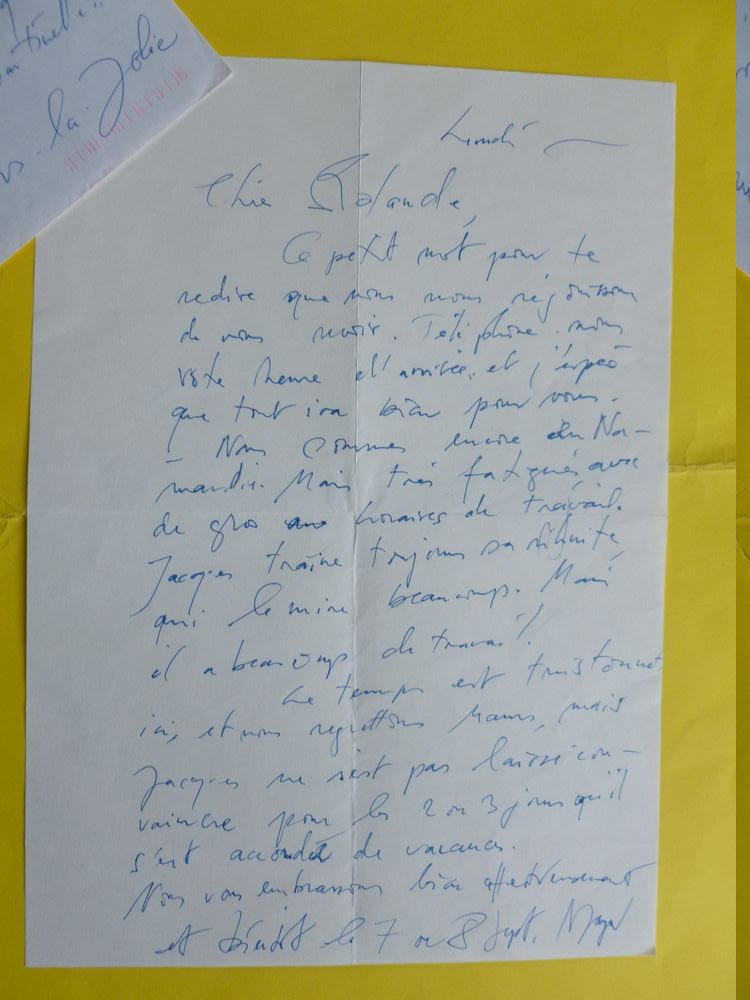 la Jolie
Lundi
Chère Rolande,
Ce petit mot pour te
redire que nous nous réjouissons
de vous revoir. Téléphone nous
votre heure d'arrivée, et j'espère
que tout ira bien pour vous.
Nous sommes encore en Nor-
mandie. Mais très fatigués avec
de gros horaires de travail.
Jacques traîne toujours sa
qui le mine beaucoup. Mais
il a beaucoup de travail!
Le temps est tristounet
ici, et nous regrettons, mais
Jacques ne s'est pas laissé con-
vaincre pour les 2 ou 3 jours qu'il
s'est accordé de vacances.
Nous vous embrassons bien affectueusement
et bientôt le 7 ou 8 Sept.